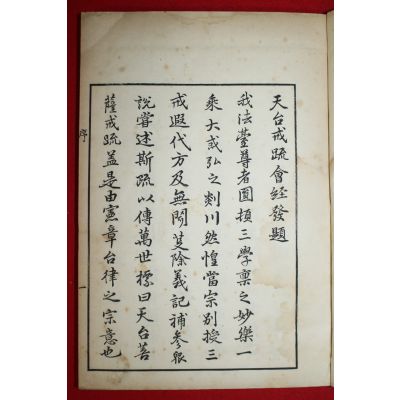 天台戒疏會経發題
我法蕐尊者圓頓三學稟之妙樂一
乘大戒弘之剡川然惶當宗別授三
戒遐代方及無問隻除義記補叅眼
說嘗述斯疏以傳萬世標曰天台菩
薩戒疏盖是由憲章台律之宗意也
序
一